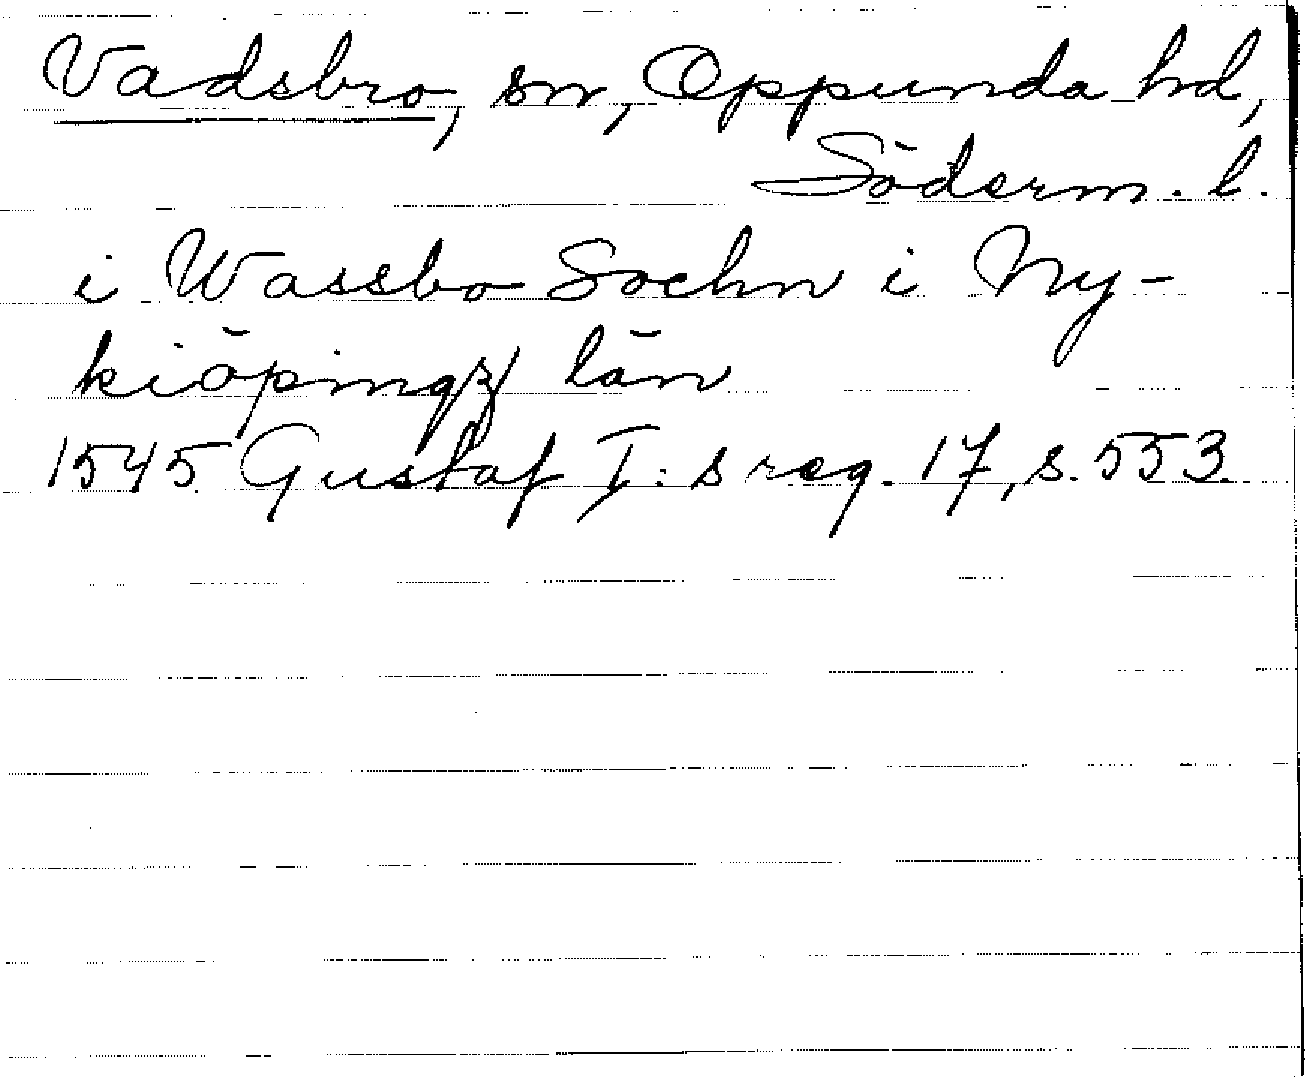 Vadsbro, sn, Oppunda hd,
Söderm. l.
i Wassbo Sochn i Ny-
kiöpingz län
1545 Gustaf I:s reg. 17, s. 553.